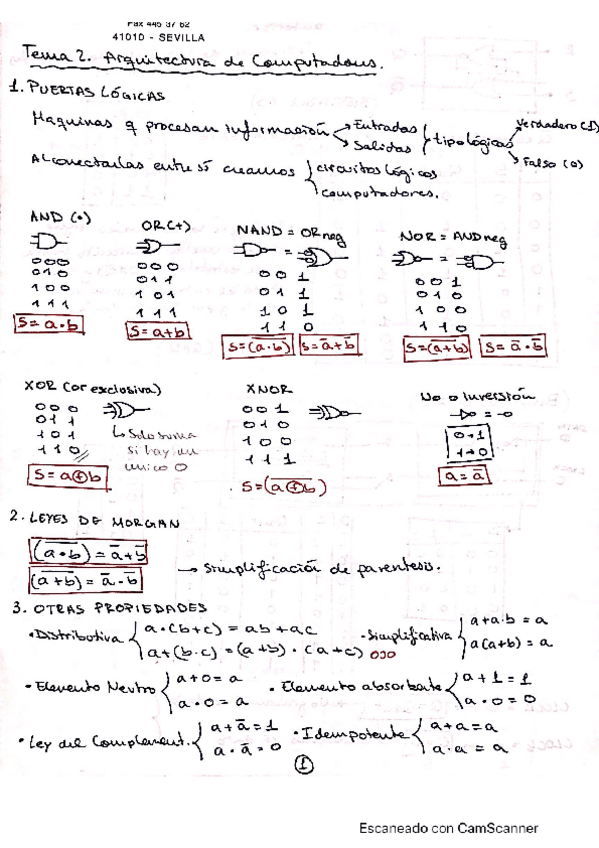 Fax 445 37 62
41010 - SEVILLA
Tema 2. Arquitectura de Computadores.
1. PUERTAS LÓGICAS
Maquinas q procesan información Entradas Salidas tipo lógicas Verdadero (1) Falso (0)
Al conectarlas entre sí creamos circuitos lógicos computadores.
AND (·) OR (+) NAND = OR neg NOR = AND neg
0 0 0
0 1 0
1 0 0
1 1 1
S = a·b
0 0 0
0 1 1
1 0 1
1 1 1
S = a+b
=
0 0 1
0 1 1
1 0 1
1 1 0
S = (a̅·̅b̅) S = a̅+b̅
=
0 0 1
0 1 0
1 0 0
1 1 0
S = (a̅+̅b̅) S = a̅·b̅
XOR (or exclusiva) XNOR No o inversión
0 0 0
0 1 1
1 0 1
1 1 0
↳ Solo suma
si hay un
unico 0
S = a⊕b
0 0 1
0 1 0
1 0 0
1 1 1
S = (a̅⊕̅b̅)
=
0→1
1→0
a = a̅
2. LEYES DE MORGAN
(a̅·̅b̅) = a̅+b̅
(a̅+̅b̅) = a̅·b̅
→ Simplificación de parentesis.
3. OTRAS PROPIEDADES
• Distributiva a·(b+c) = ab+ac
a+(b·c) = (a+b)·(a+c) ojo
• Simplificativa a+a·b = a
a(a+b) = a
• Elemento Neutro a+0=a
a·0=a
• Elemento absorbate a+1=1
a·0=0
• Ley del Complement. a+a̅=1
a·a̅=0
• Idempotente a+a=a
a·a=a
1
Escaneado con CamScanner